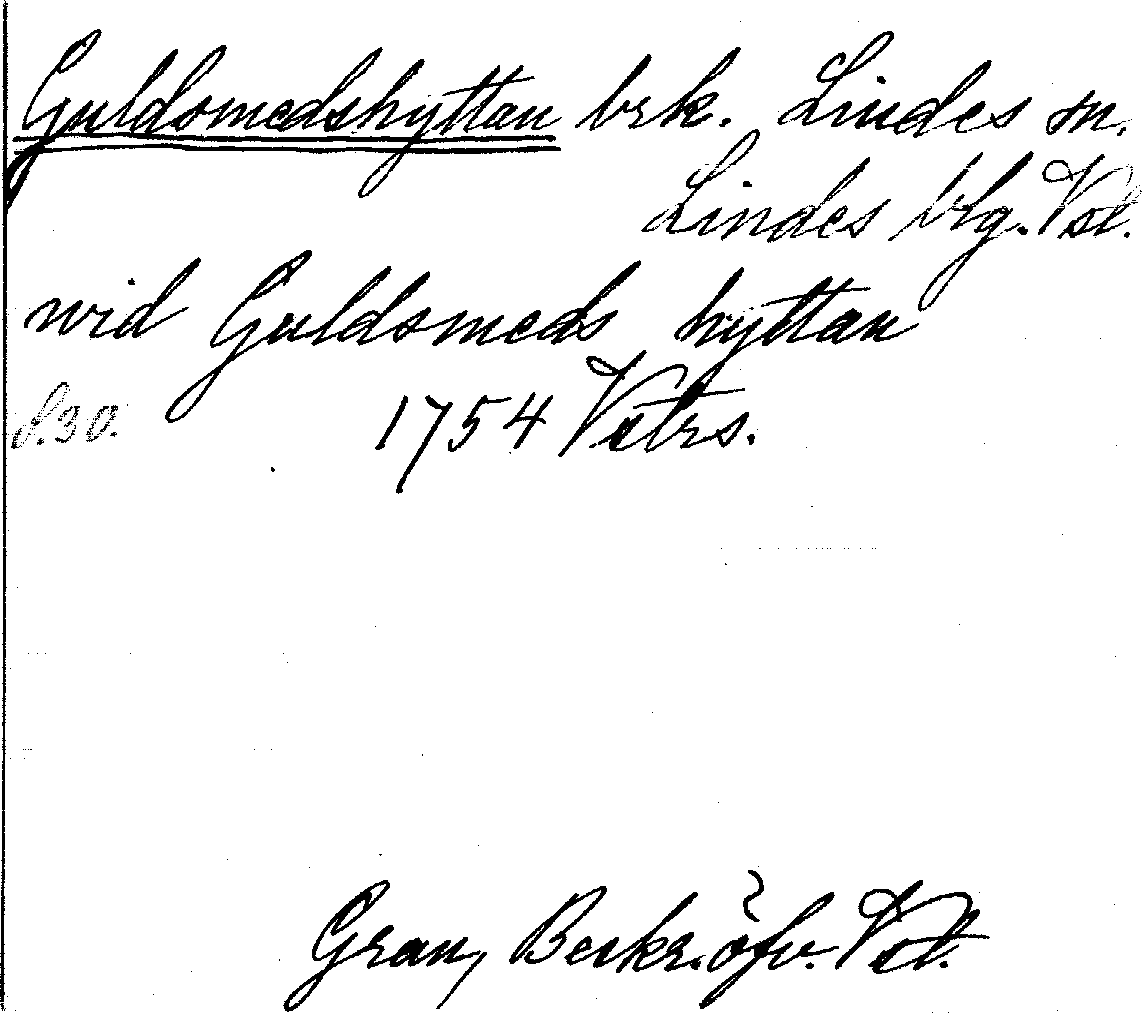 Guldsmedshyttan brk. Lindes sn.
Lindes blg. Vsl.
wid Guldsmeds hyttan
S. 30. 1754 Vetrs.
Gran, Beskr. öfv. Vsl.